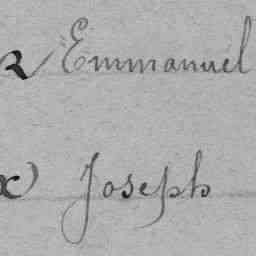 Emmanuel
Joseph